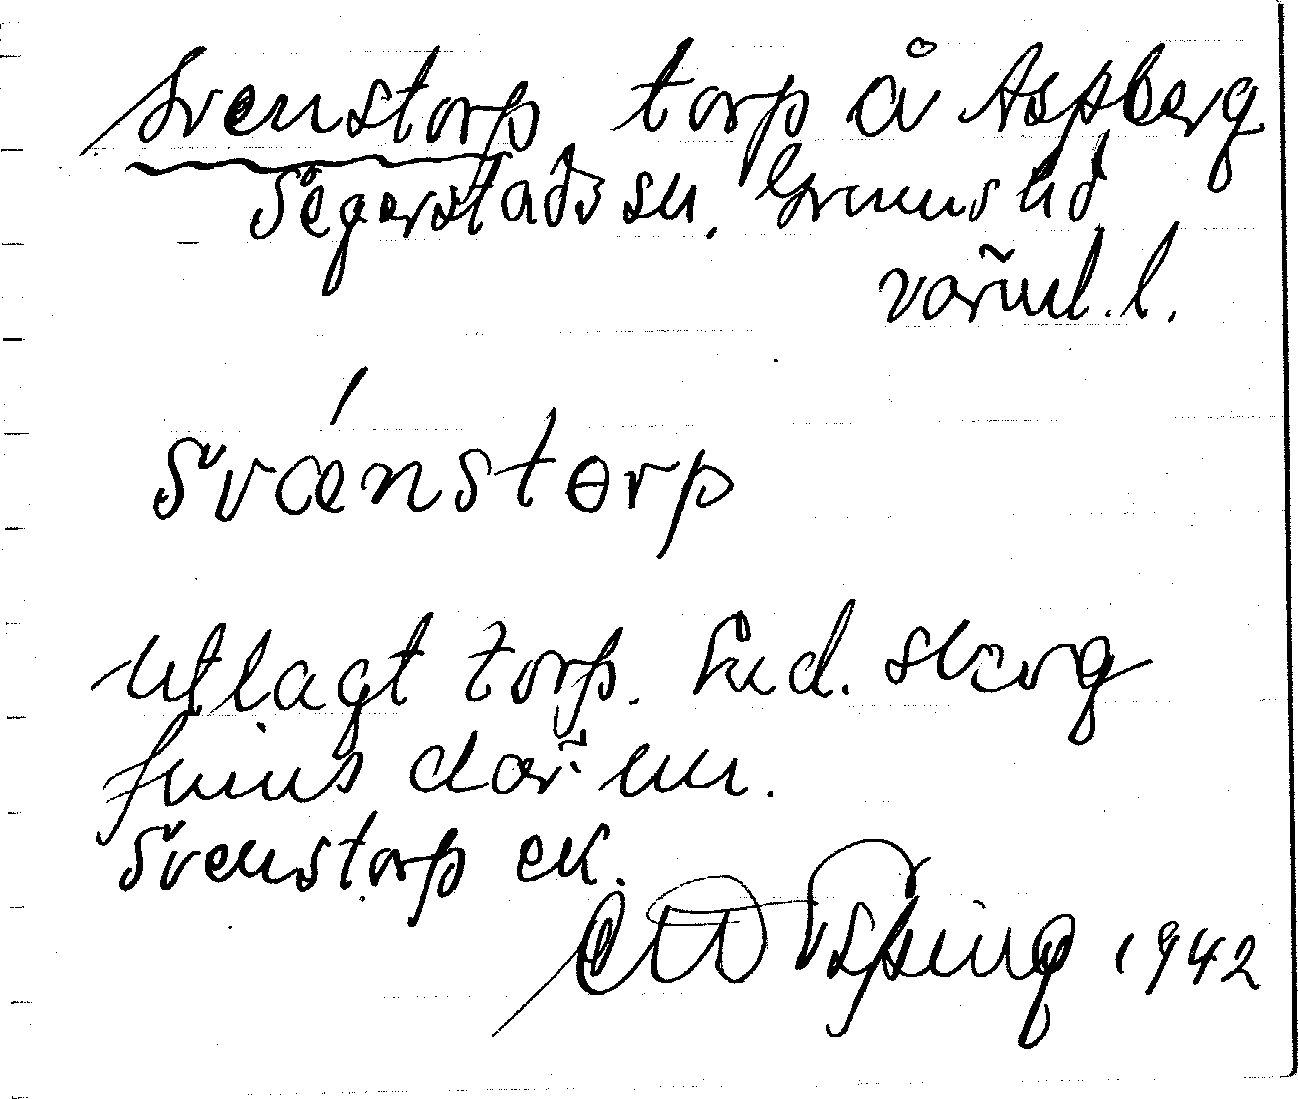 Svenstorp torp å Aspberg
Segerstads sn. Grums hd
Värml. l.
Svǽnstorp
Utlagt torp. End. skog
finns där nu.
Svenstorp ek.
1942